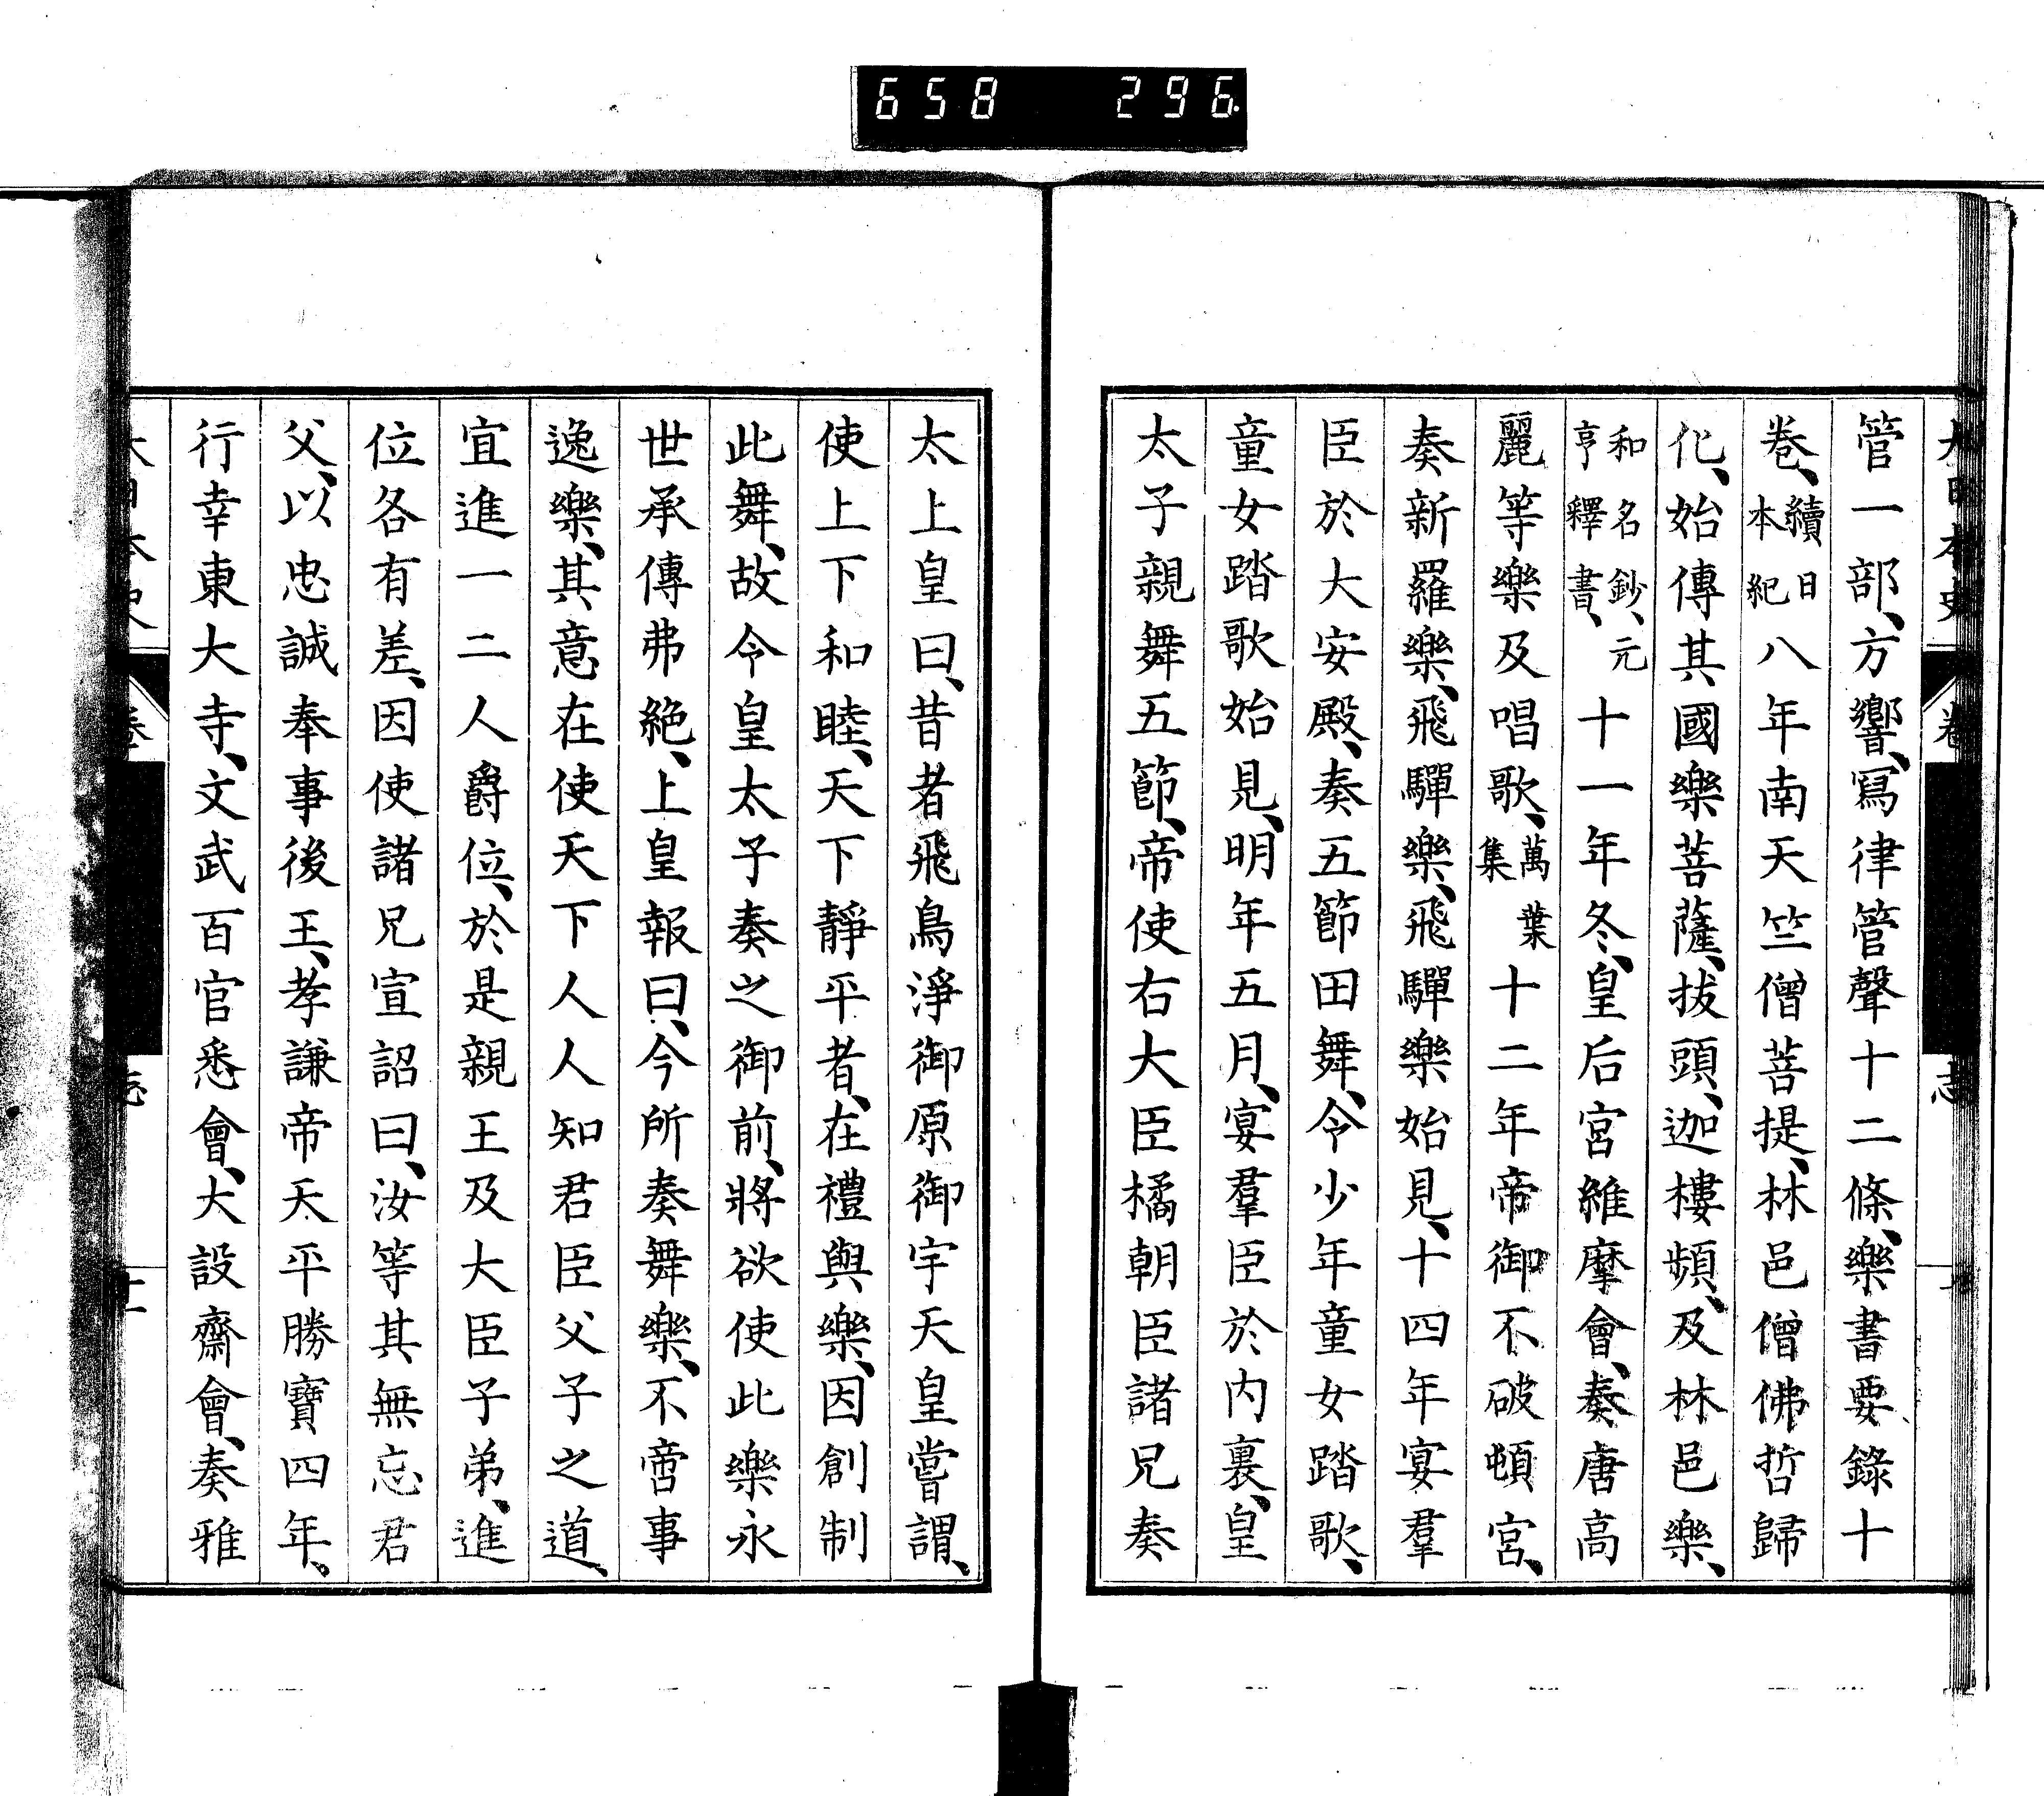 658 296
管一部、方響、寫律管聲十二條、樂書要錄十
卷、續日本紀八年南天竺僧菩提、林邑僧佛哲歸
化、始傳其國樂菩薩、拔頭、迦樓頻、及林邑樂、
和名鈔、元亨釋書、十一年冬、皇后宮維摩會、奏唐高
麗等樂及唱歌、萬葉集十二年帝御不破頓宮、
奏新羅樂、飛驒樂、飛驒樂始見、十四年宴羣
臣於大安殿、奏五節田舞、令少年童女踏歌、
童女踏歌始見、明年五月、宴羣臣於內裏、皇
太子親舞五節、帝使右大臣橘朝臣諸兄奏
太上皇曰、昔者飛鳥淨御原御宇天皇嘗謂、
使上下和睦、天下靜平者、在禮與樂、因創制
此舞、故令皇太子奏之御前、將欲使此樂永
世承傳弗絕、上皇報曰、今所奏舞樂、不啻事
逸樂、其意在使天下人人知君臣父子之道、
宜進一二人爵位、於是親王及大臣子弟、進
位各有差、因使諸兄宣詔曰、汝等其無忘君
父、以忠誠奉事後王、孝謙帝天平勝寶四年、
行幸東大寺、文武百官悉會、大設齋會、奏雅